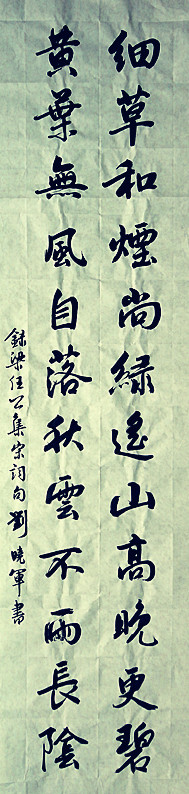 細草和煙尚綠遙山高晚更碧
黃葉無風自落秋雲不雨長陰
錄梁任公集宋詞句劉曉軍書